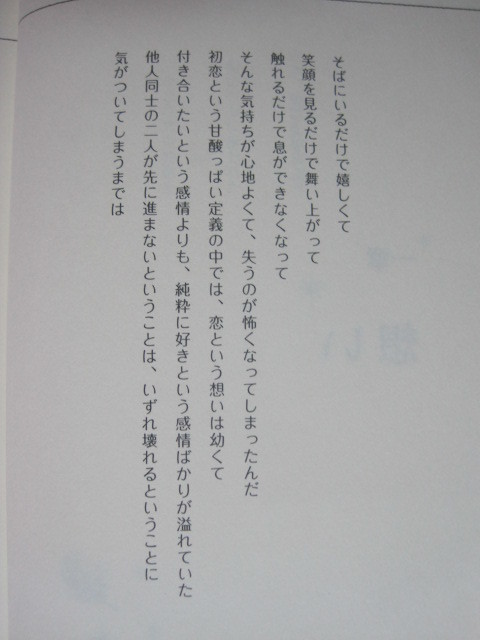 そばにいるだけで嬉しくて
笑顔を見るだけで舞い上がって
触れるだけで息ができなくなって
そんな気持ちが心地よくて、失うのが怖くなってしまったんだ
初恋という甘酸っぱい定義の中では、恋という想いは幼くて
付き合いたいという感情よりも、純粋に好きという感情ばかりが溢れていた
他人同士の二人が先に進まないということは、いずれ壊れるということに
気がついてしまうまでは